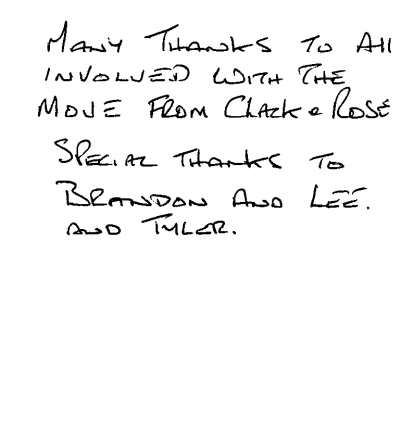 Many Thanks to All
involved with the
Move from Clark & Rose
Special thanks to
Brandon and Lee.
and Tyler.